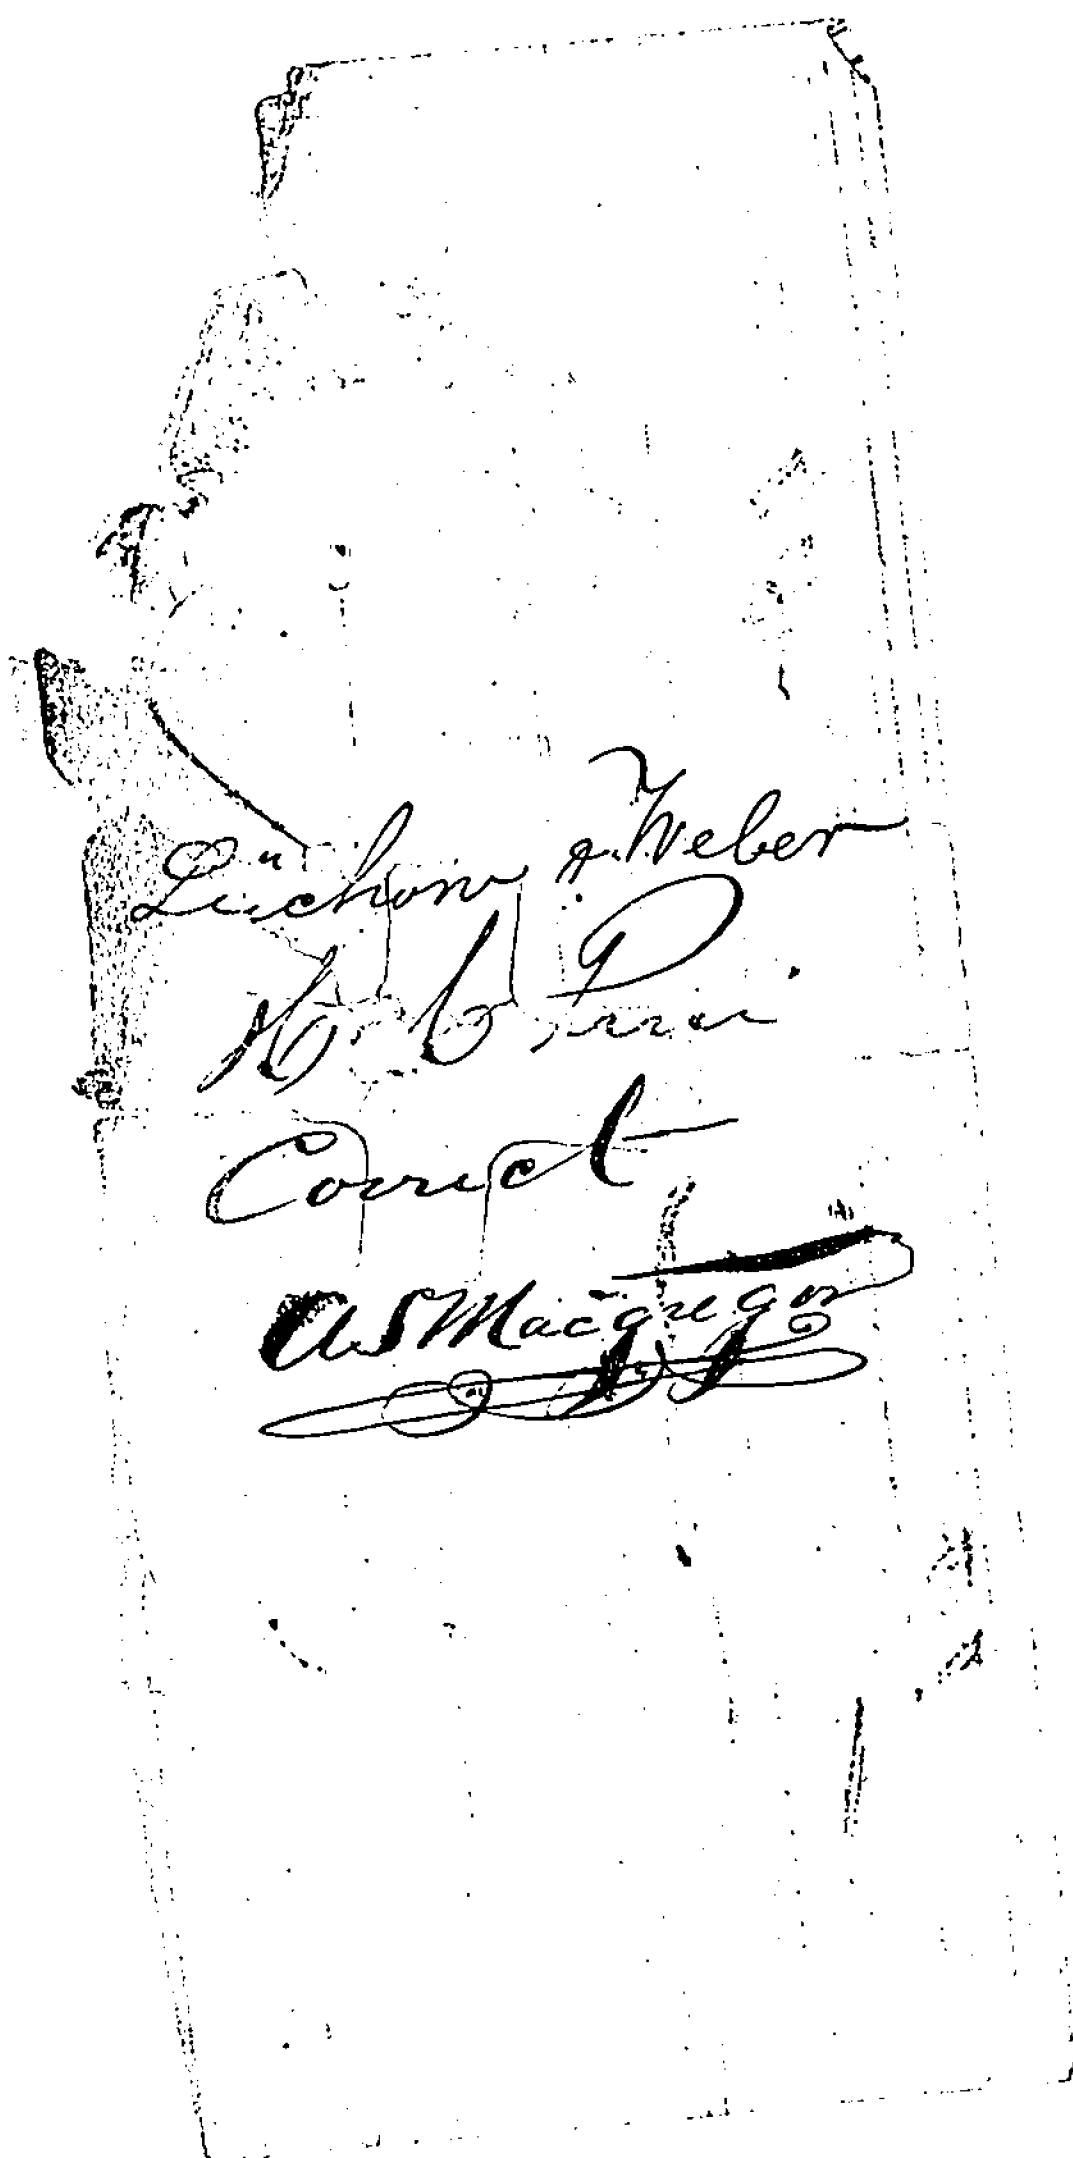 Lüchow & Weber
Correct
A S Macgregor